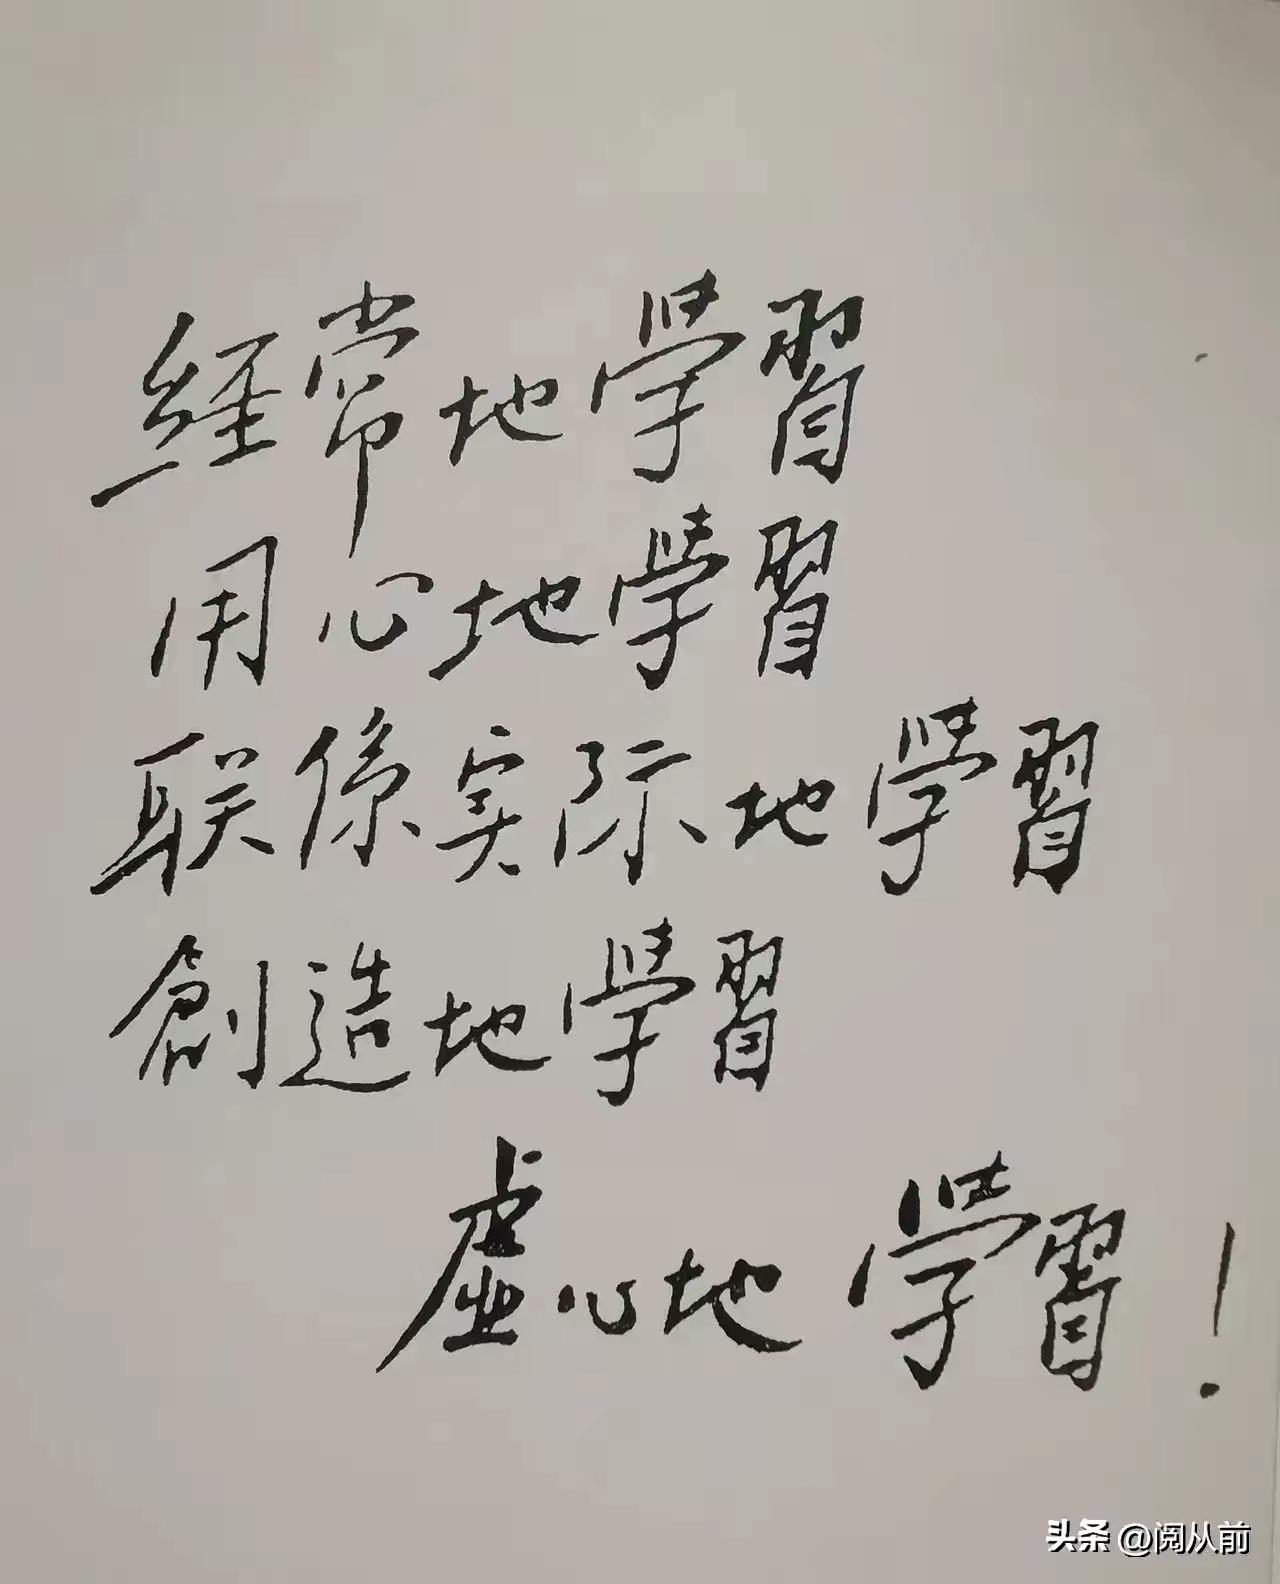 經常地學習
用心地學習
联係实际地學習
創造地學習
虚心地學習！
头条 @阅从前